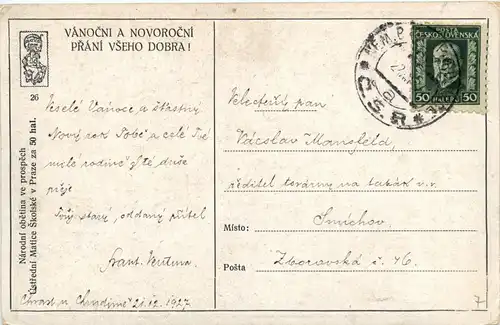 VÁNOČNI A NOVOROČNÍ
PŘÁNÍ VŠEHO DOBRA!
26
Národní obětina ve prospěch
Ústřední Matice Školské v Praze za 50 hal.
Veselé Vánoce a šťastný
Nový rok Tobě a celé Tvé
milé rodině z té duše
přeje
Tvůj starý, oddaný přítel
Frant.
Chrast u Chrudimě 21.12.1927
POŠTA
ČESKOSLOVENSKÁ
50 HALÉŘŮ 50
Č.S.R.
Velectěný pan
Václav Mansfeld,
ředitel továrny na tabák v.v.
Smíchov
Místo:
Zborovská č. 46.
Pošta
7